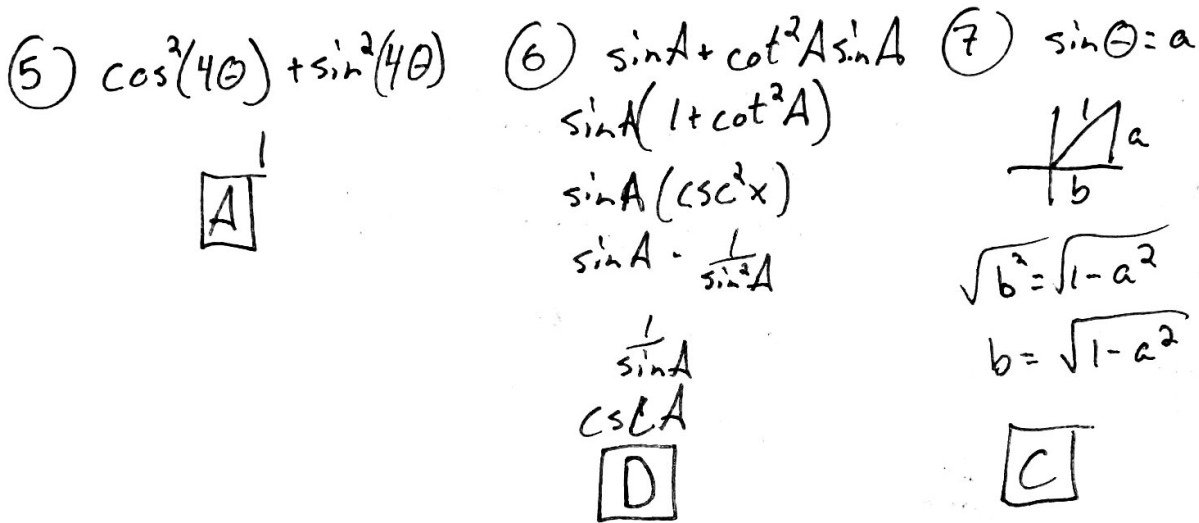 ⑤ cos²(4θ) + sin²(4θ)
1
A
⑥ sinA + cot²A sinA
sinA(1 + cot²A)
sinA(csc²x)
sinA · 1/sin²A
1/sinA
cscA
D
⑦ sinθ = a
1
a
b
√b² = √1-a²
b = √1-a²
C